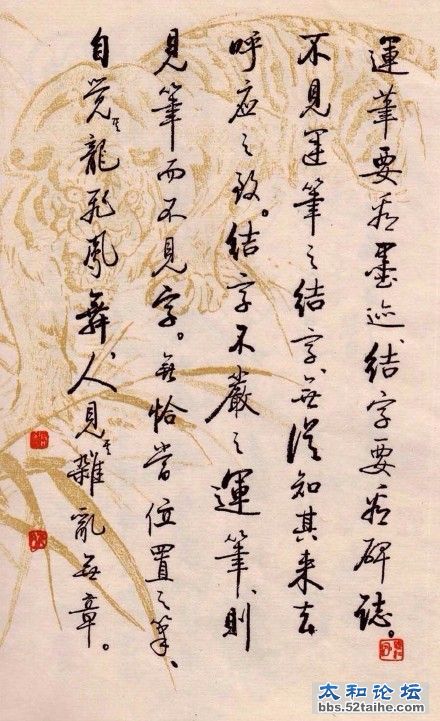 運筆要看墨迹、結字要看碑誌。
不見運筆之結字、無從知其来去
呼应之致。結字不嚴之運筆、則
見筆而不見字。無恰當位置之筆、
自覚其龍飛鳳舞、人見其雜亂無章。
太和论坛
bbs.52taihe.com